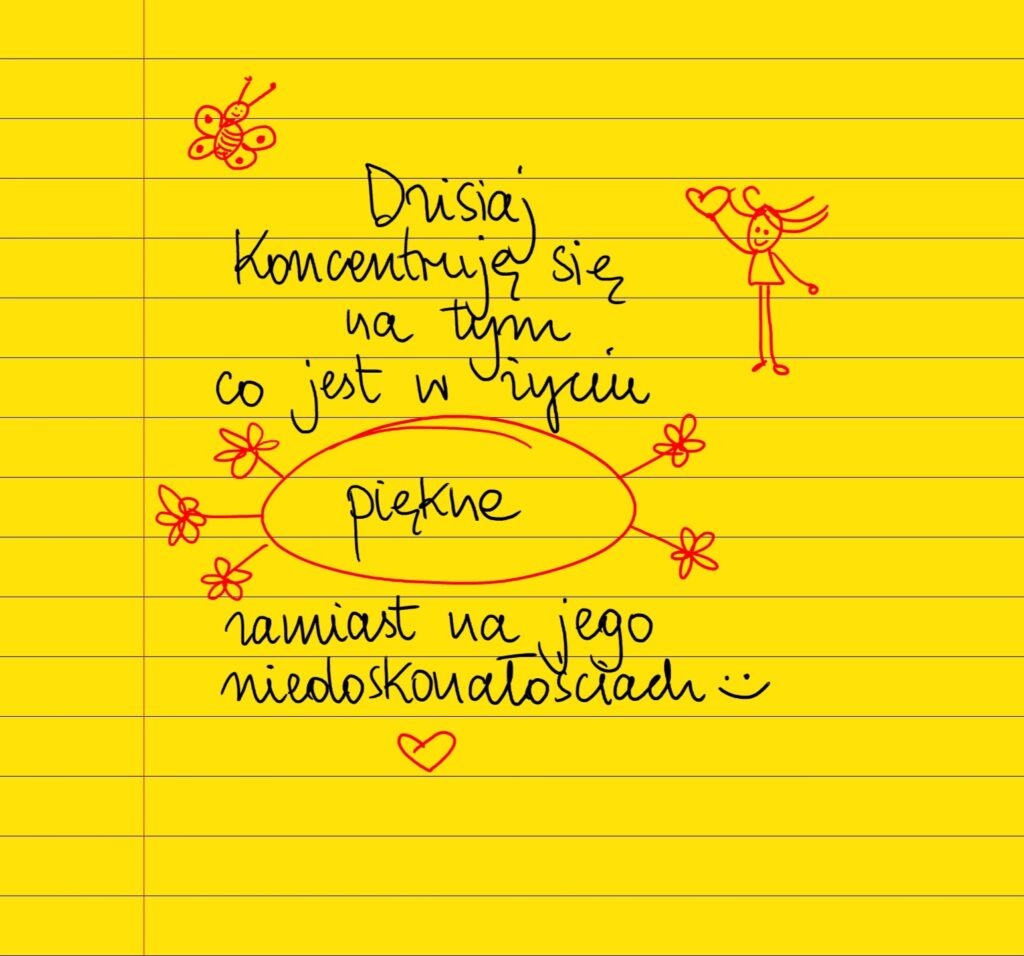 Dzisiaj
Koncentruję się
na tym
co jest w życiu
piękne
zamiast na jego
niedoskonałościach :)